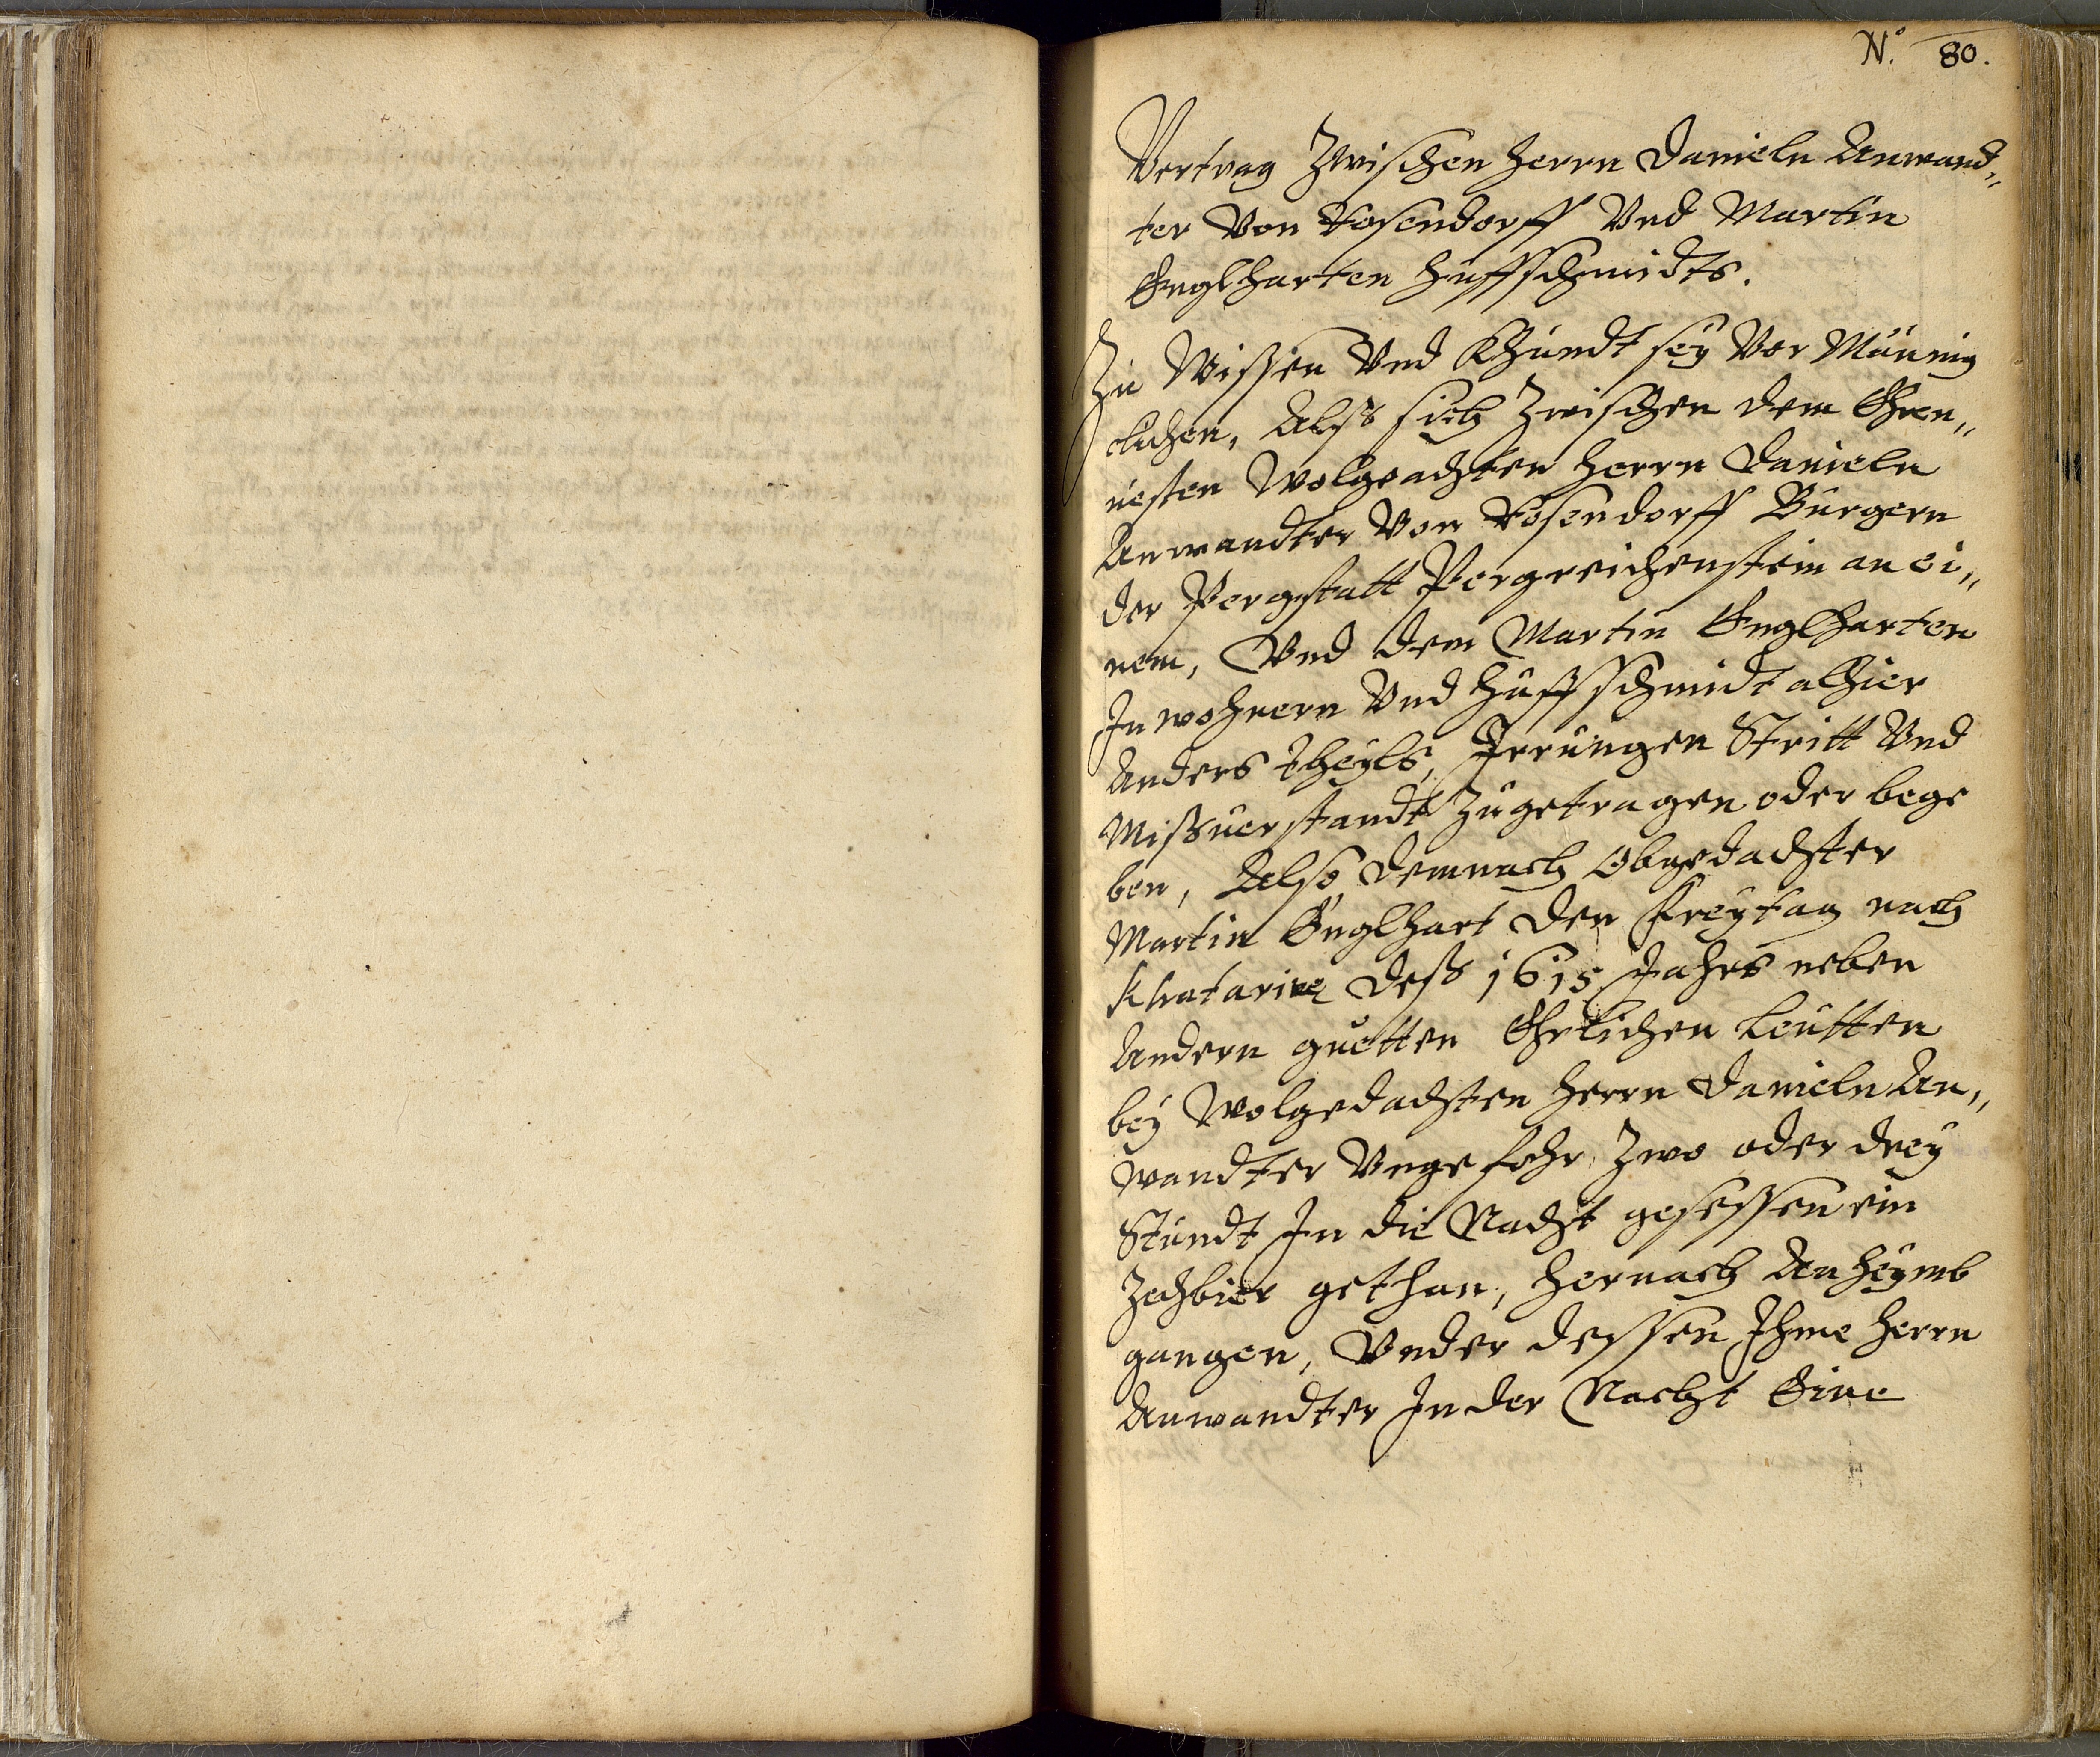 No. 80.
Vertrag Zwischen Herrn Danieln Anwand,,
ter Von Rosendorff Vnd Martin
Englharten Hueffschmidts.
Zu Wissen Vnd Khundt sey Vor Männig
clichen, Alß sich Zwischen dem Ehrn,,
uesten Wolgeachten Herrn Danieln
Anwandter Von Rosendorff Burgern
der Pergstatt Pergreichenstein an ei,,
nem, Vnd dem Martin Englharten
Inwohnern Vnd Hueffschmidt alhier
Anders theyls, Irrungen Stritt Vnd
Mißuerstandt Zugetragen oder bege
ben, Also demnach Obgedachter
Martin Englhart den Freytag nach
Khatarine deß 1615 Jahrs neben
Andern guetten Ehrlichen Leutten
bey Wolgedachten Herrn Danieln An,,
wandter Vngefehr Zwo oder drey
Stundt In die Nacht gesessen ein
Zechbier gethan, Hernach Anheymb
gangen, Vnder dessen Ihme Herrn
Anwandter In der Nacht Eine